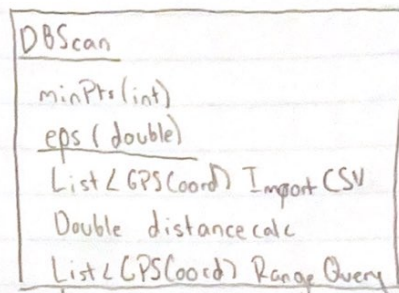 DBScan
minPts(int)
eps (double)
List<GPSCoord) Import CSV
Double distancecalc
List<GPSCoord) Range Query